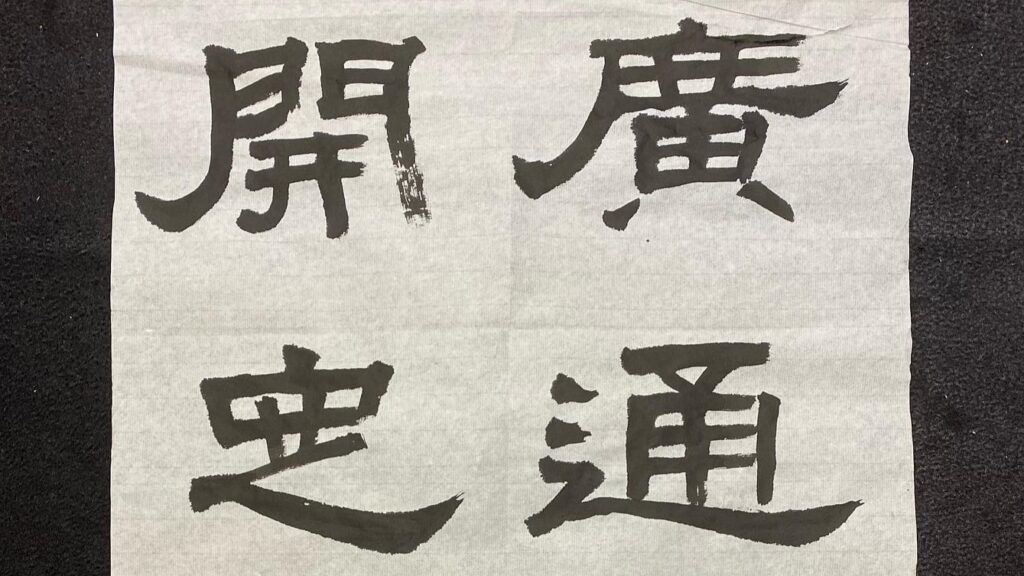 廣通
開定